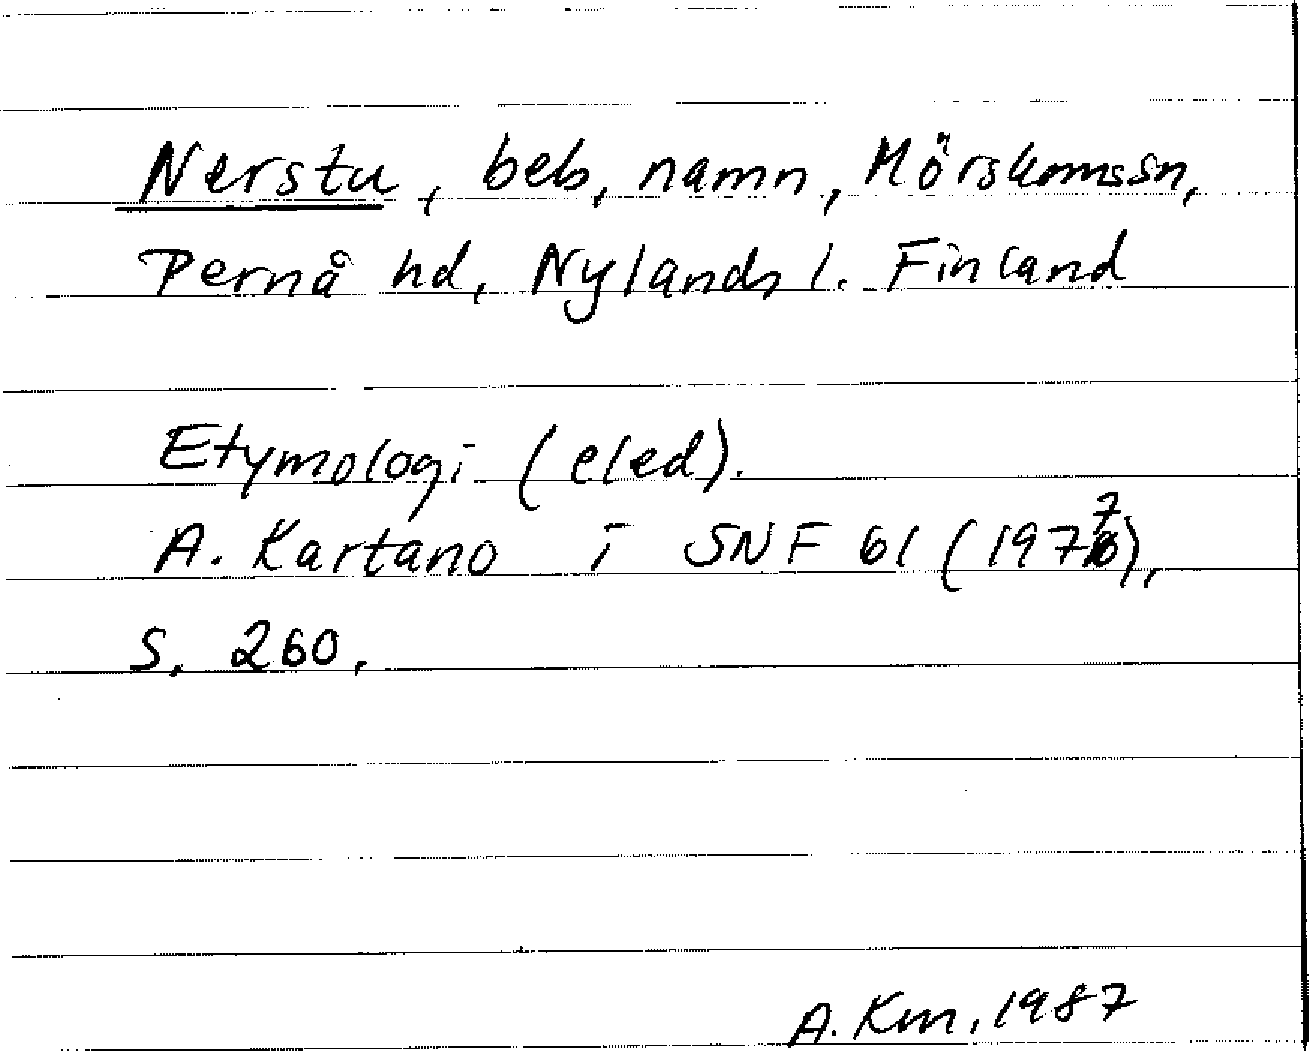 Nerstu, beb, namn, Mörskomssn,
Pernå hd, Nylands l. Finland
Etymologi (eled).
A. Kartano i SNF 61 (1977),
S. 260.
A. Km, 1987